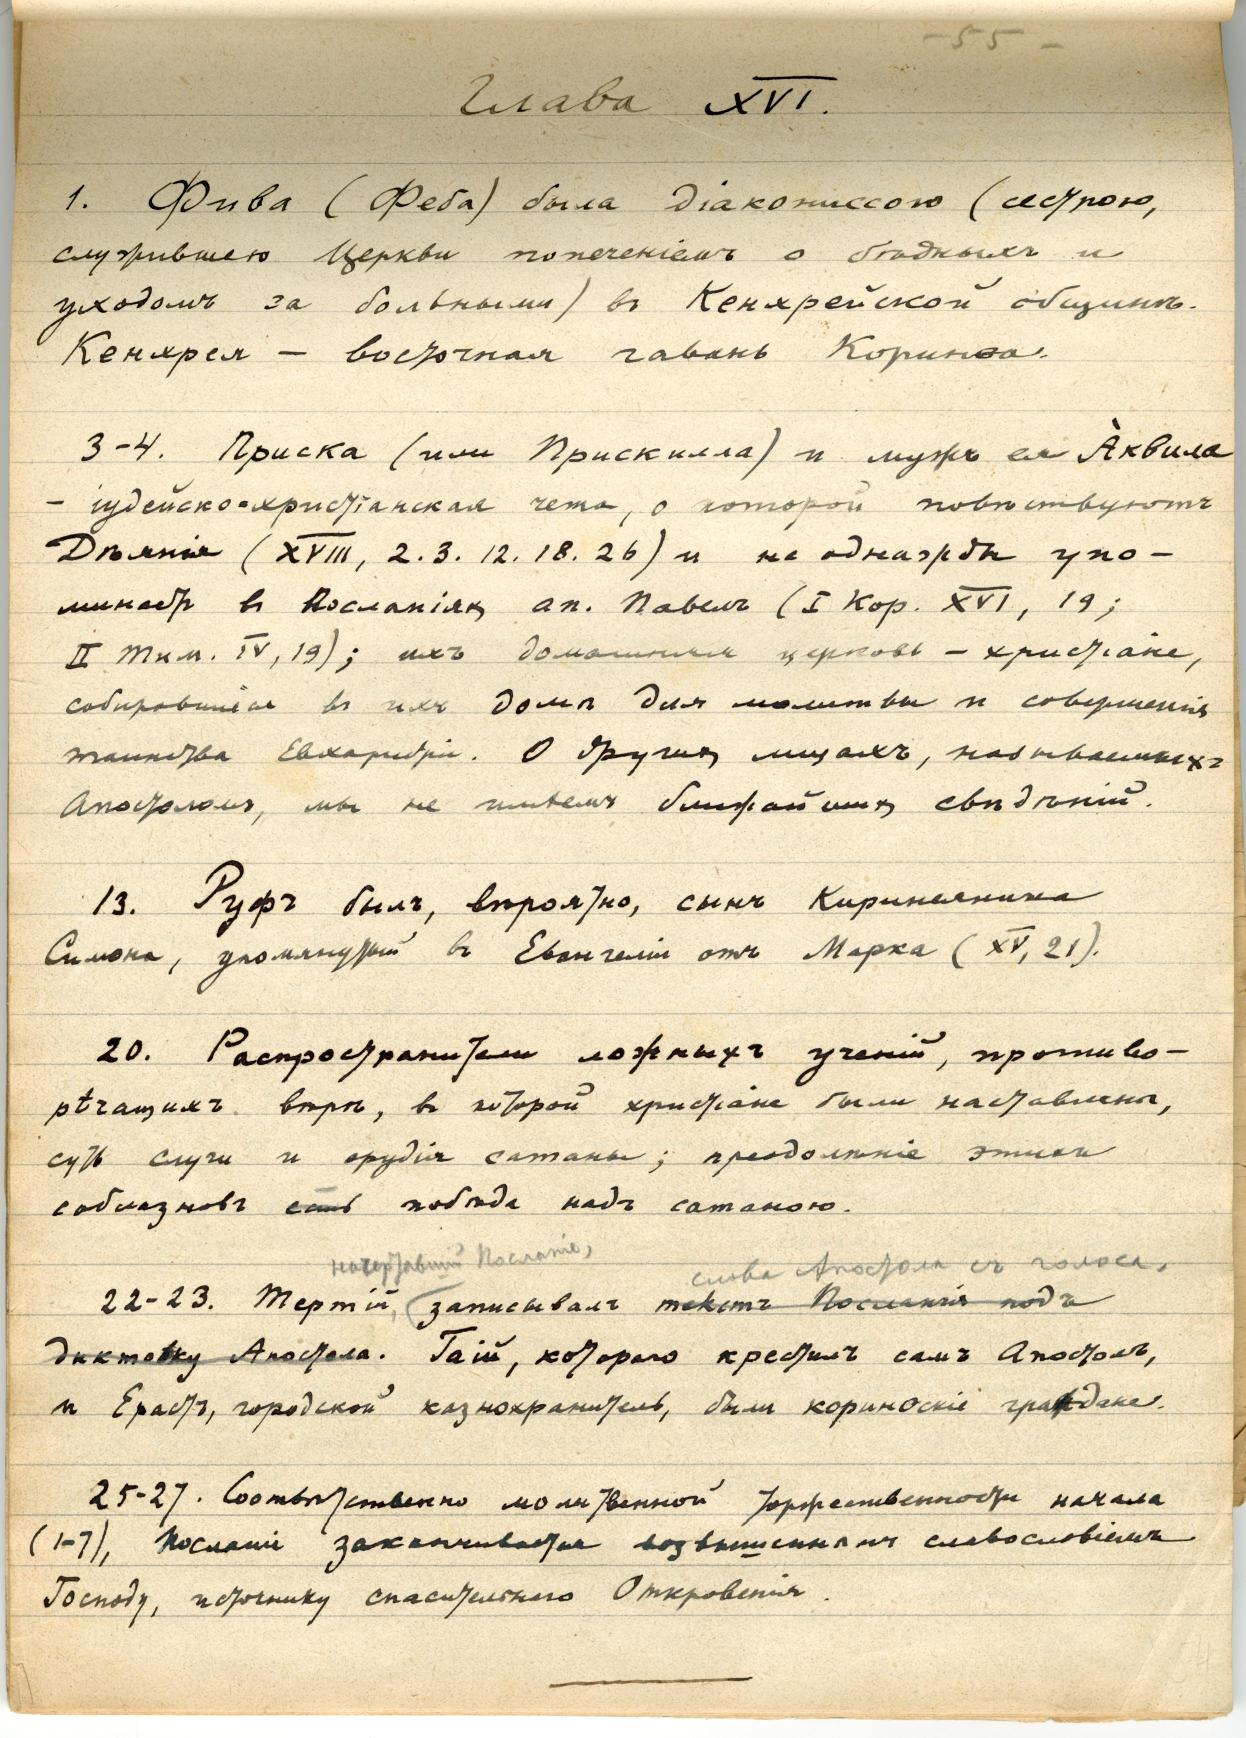 -55-
Глава XVI.
1. Фива (Феба) была діакониссою (сестрою,
служившею Церкви попеченіемъ о бѣдныхъ и
уходомъ за больными) въ Кенхрейской общинѣ.
Кенхрея – восточная гавань Коринѳа.
3-4. Приска (или Прискилла) и мужъ ея А̀квила
– іудейско-христіанская чета, о которой повѣствуютъ
Дѣянія (XVIII, 2. 3. 12. 18. 26) и не однажды упо-
минаетъ въ Посланіяхъ ап. Павелъ (I Кор. XVI, 19;
II Тим. IV, 19); ихъ домашняя церковь – христіане,
собиравшіеся въ ихъ домѣ для молитвы и совершенія
таинства Евхаристіи. О другихъ лицахъ, называемыхъ
Апостоломъ, мы не имѣемъ ближайшихъ свѣдѣній.
13. Руфъ былъ, вѣроятно, сынъ Киринеянина
Симона, упомянутый въ Евангеліи отъ Марка (XV, 21).
20. Распространители ложныхъ ученій, противо-
рѣчащихъ вѣрѣ, въ которой христіане были наставлены,
суть слуги и орудія сатаны; преодолѣніе этихъ
соблазновъ есть побѣда надъ сатаною.
начертавшій Посланіе, слова Апостола съ голоса.
22-23. Тертій, (записывалъ текстъ Посланія подъ
диктовку Апостола. Гаій, котораго крестилъ самъ Апостолъ,
и Ерастъ, городской казнохранитель, были коринѳскіе граждане.
25-27. Соотвѣтственно молитвенной торжественности начала
(1-7), Посланіе заканчивается возвышеннымъ славословіемъ
Господу, источнику спасительнаго Откровенія.